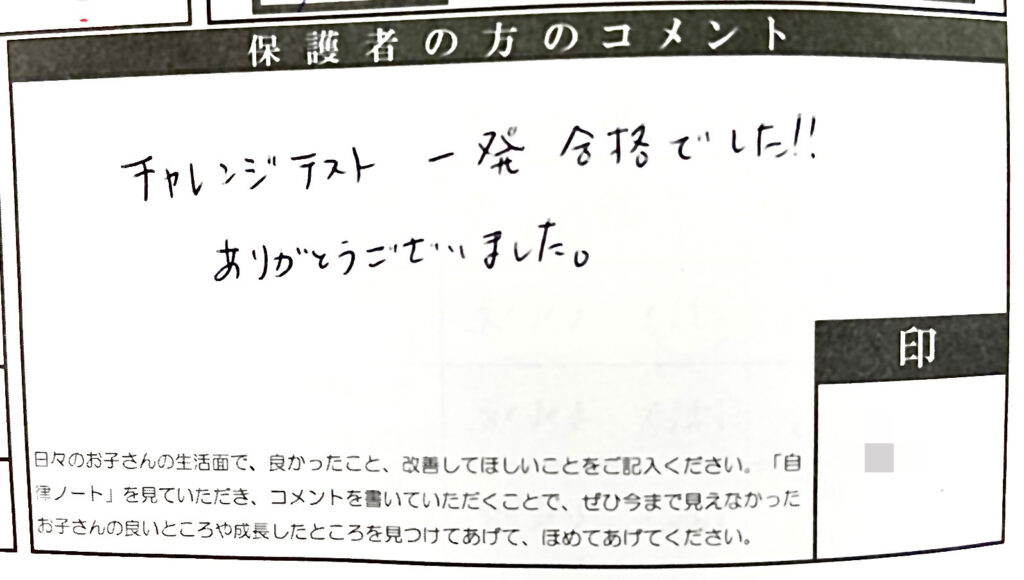 保護者の方のコメント
チャレンジテスト 一発 合格でした!!
ありがとうございました。
印
日々のお子さんの生活面で、良かったこと、改善してほしいことをご記入ください。「自
律ノート」を見ていただき、コメントを書いていただくことで、ぜひ今まで見えなかった
お子さんの良いところや成長したところを見つけてあげて、ほめてあげてください。